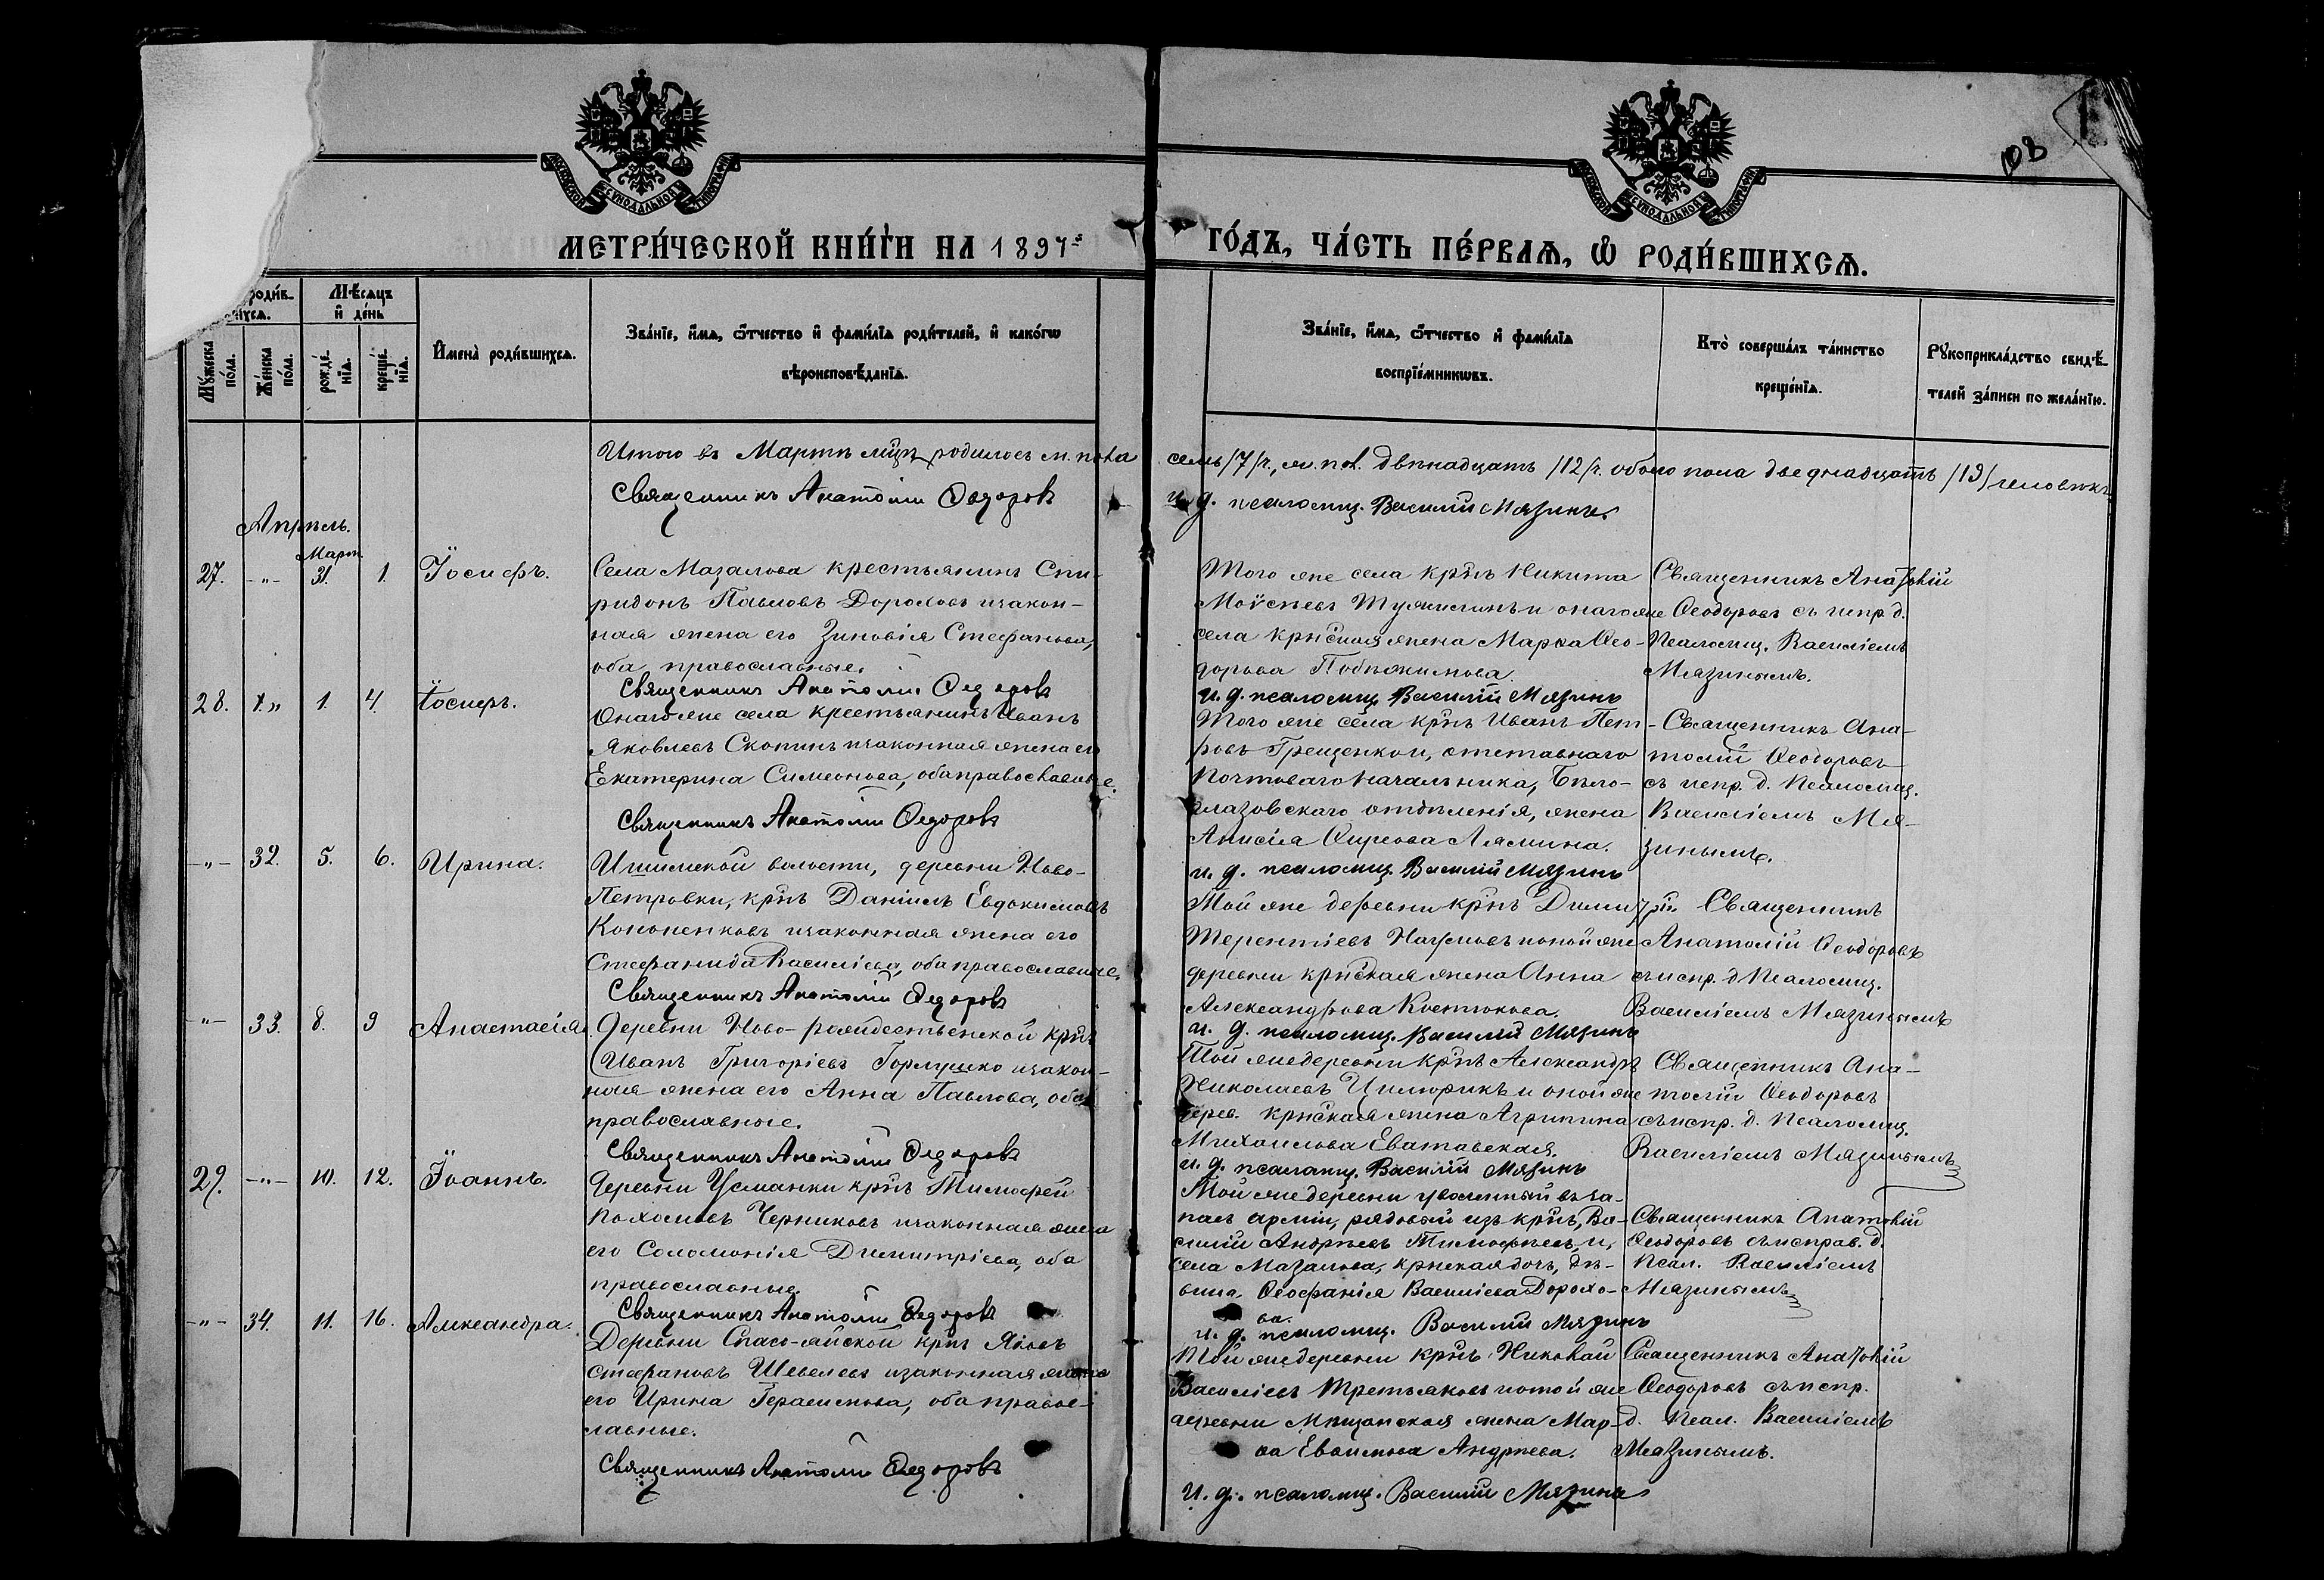 103
МЕТРИ́ЧЕСКОЙ КНИ́ГИ НА 1897 ГО́ДЪ, ЧА́СТЬ ПЕ́РВАѦ, Ѡ РОДИ́ВШИХСѦ.
Мѣсѧцъ и де́нь
Мꙋжеска по́ла.
Же́нска по́ла.
рожде́нїѧ.
креще́нїѧ.
Имена̀ роди́вшихсѧ.
Зва́нїе, и́мѧ, ѻ҆́тчество и фами́лїѧ роди́телей, и како́гѡ
вѣроисповѣ́данїѧ.
Зва́нїе, и́мѧ, ѻ҆́тчество и фами́лїѧ
воспрїе́мникѡвъ.
Кто̀ соверша́лъ та́инство
креще́нїѧ.
Рꙋкоприкла́дство свидѣ́-
телей за́писи по жела́нїю.
Итого въ Мартѣ мцѣ родилось м. пола
семь /7/ ч., ж. пол. двѣнадцать /12/ ч. обоего пола девятнадцать /19/ человѣкъ
Священникъ Анатолій Ѳедоровъ
и. д. псаломщ. Василій Мязинъ.
Апрѣль.
Март.
27. -"- 31. 1. Іосифъ.
Села Мазалова крестьянинъ Спи-
ридонъ Павловъ Дороховъ и закон-
ная жена его Зиновія Стефанова,
оба православные.
Священникъ Анатолій Ѳедоровъ
Того же села крнъ Никита
Моѵсеевъ и онаго же
села крнская жена Марѳа Ѳео-
дорова
и. д. псаломщ. Василій Мязинъ
Священникъ Анатолій
Ѳеодоровъ съ испр. д.
Псаломщ. Василіемъ
Мязинымъ.
28. 1. 4. Іосифъ.
Онаго же села крестьянинъ Иванъ
Яковлевъ Скопинъ и законная жена его
Екатерина Симеонова, оба православные.
Священникъ Анатолій Ѳедоровъ
Того же села крнъ Иванъ Пет-
ровъ Грещенкои, отставнаго
Почтоваго Начальника, Бѣло-
глазовскаго отдѣленія, жена
Анисія Лямина.
и. д. псаломщ. Василій Мязинъ
Священникъ Ана-
толій Ѳеодоровъ
съ испр. д. Псаломщ.
Василіемъ Мя-
зинымъ.
-"- 32. 5. 6. Ирина.
Ишимской волости, деревни Ново-
Петровки, крнъ Даніилъ Евдокимовъ
Кононенковъ и законная жена его
Стефанида Василіева, оба православные.
Священникъ Анатолій Ѳедоровъ
Той же деревни крнъ Димитрій
Терентіевъ Наумовъ и оной же
деревни крнская жена Анна
Александрова Костюкова.
и. д. псаломщ. Василій Мязинъ
Священникъ
Анатолій Ѳеодоровъ
съ испр. д. Псаломщ.
Василіемъ Мязинымъ
-"- 33. 8. 9 Анастасія.
Деревни Ново-рождественской крнъ
Иванъ Григоріевъ Горлушко и закон-
ная жена его Анна Павлова, оба
православные.
Священникъ Анатолій Ѳедоровъ
Той же деревни крнъ Александръ
Николаевъ Циморикъ и оной же
дерев. крнская жена Агрипина
Михаилова Еватавская.
и. д. псаломщ. Василій Мязинъ
Священникъ Ана-
толій Ѳеодоровъ
съ испр. д. Псаломщ.
Василіемъ Мязинымъ
29. -"- 10. 12. Іоаннъ.
Деревни Усманки крнъ Тимофей
Пахомовъ Черниковъ и законная жена
его Соломонія Димитріева, оба
православные.
Священникъ Анатолій Ѳедоровъ
Той же деревни уволенный въ за-
пасъ арміи, рядовый изъ крнъ, Ва-
силій Андреевъ Тимофеевъ, и,
села Мазалова, крнская дочь, дѣ-
вица, Ѳеофанія Василіева Дорохо-
ва.
и. д. псаломщ. Василій Мязинъ
Священникъ Анатолій
Ѳеодоровъ съ исправ. д.
Псал. Василіемъ
Мязинымъ
-"- 34. 11. 16. Александра.
Деревни Спасо-яйской крнъ Яковъ
Стефановъ Шевелевъ и законная жена
его Ирина Герасимова, оба правос-
лавные.
Священникъ Анатолій Ѳедоровъ
Той же деревни крнъ Николай
Василіевъ Третьяковъ и той же
деревни Мѣщанская жена Мар-
ѳа Андреева.
и. д. псаломщ. Василій Мязинъ
Священникъ Анатолій
Ѳеодоровъ съ испр.
д. Псал. Василіемъ
Мязинымъ.